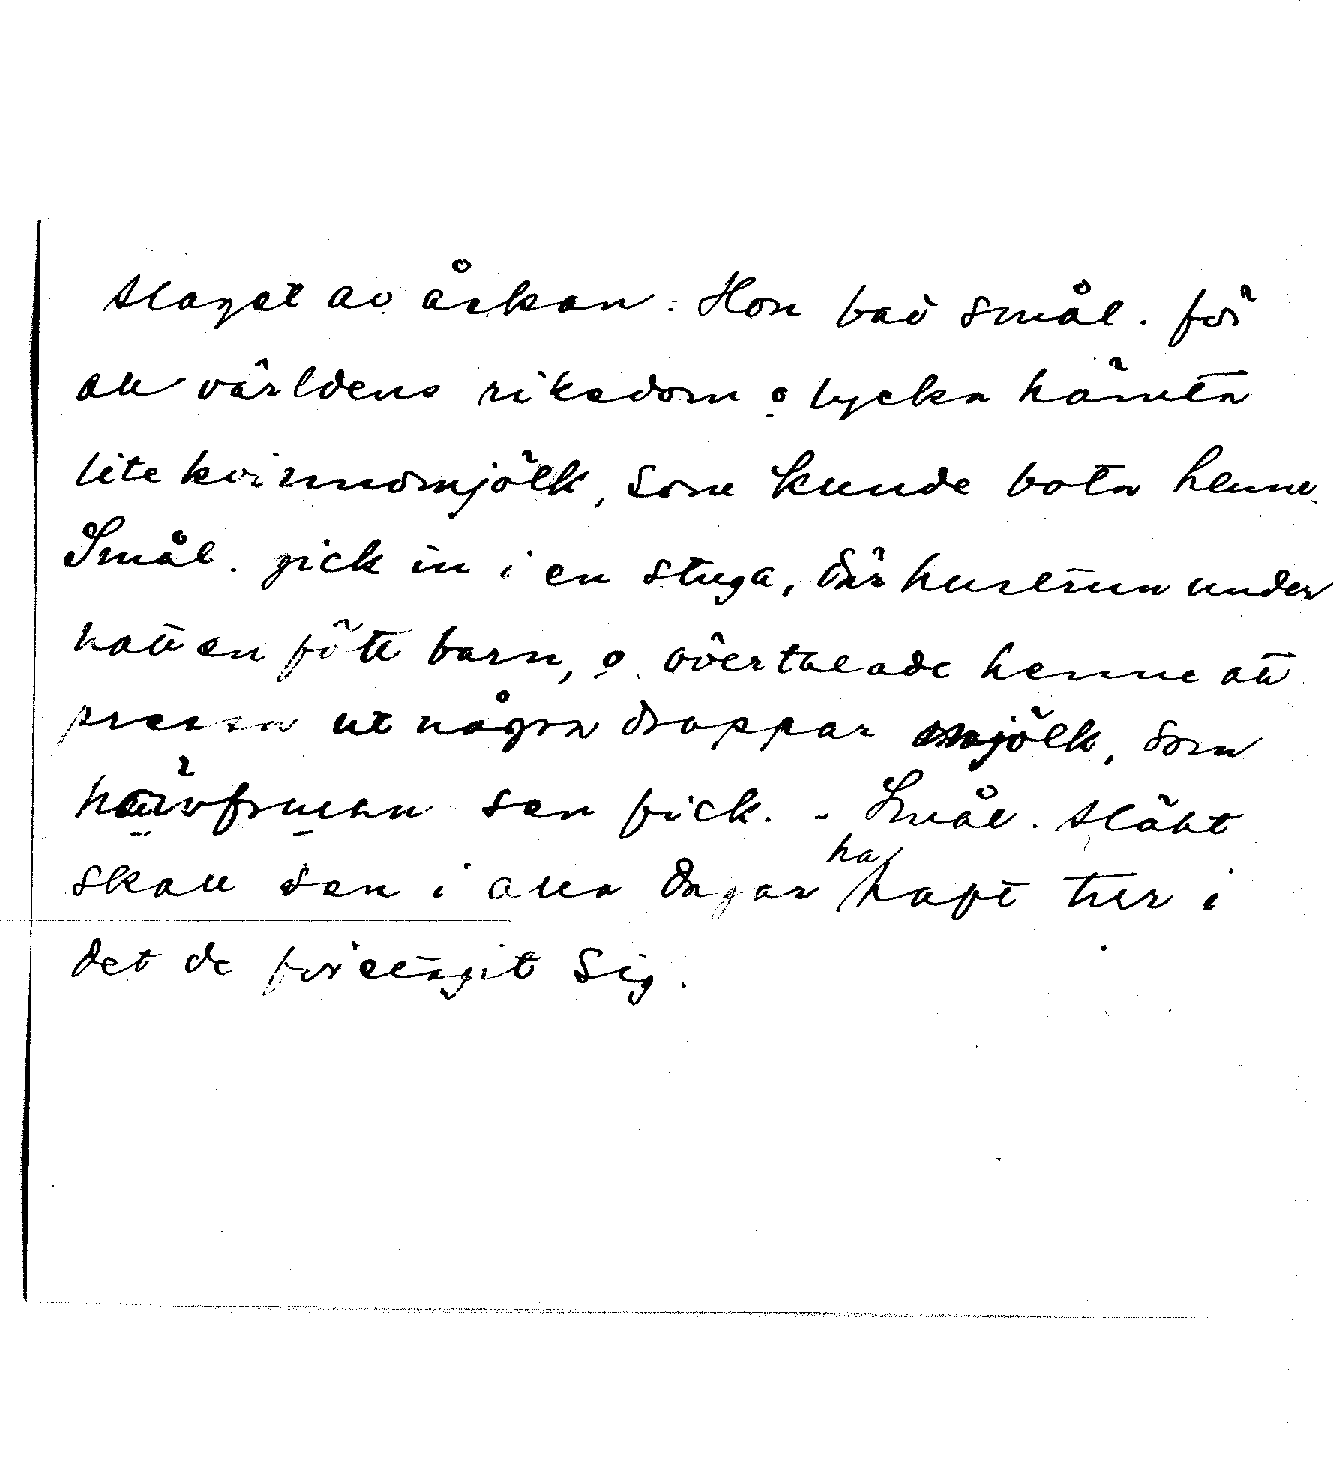 slaget av åskan. Hon bad smål. för
all världens rikedom o lycka hämta
lite kvinnomjölk, som kunde bota henne.
Smål. gick in i en stuga, där hustrun under
natten fött barn, o. övertalade henne att
pressa ut några droppar mjölk, som
sen fick. - Smål. släkt
skall sen i alla dagar ha haft tur i
det de företagit sig.